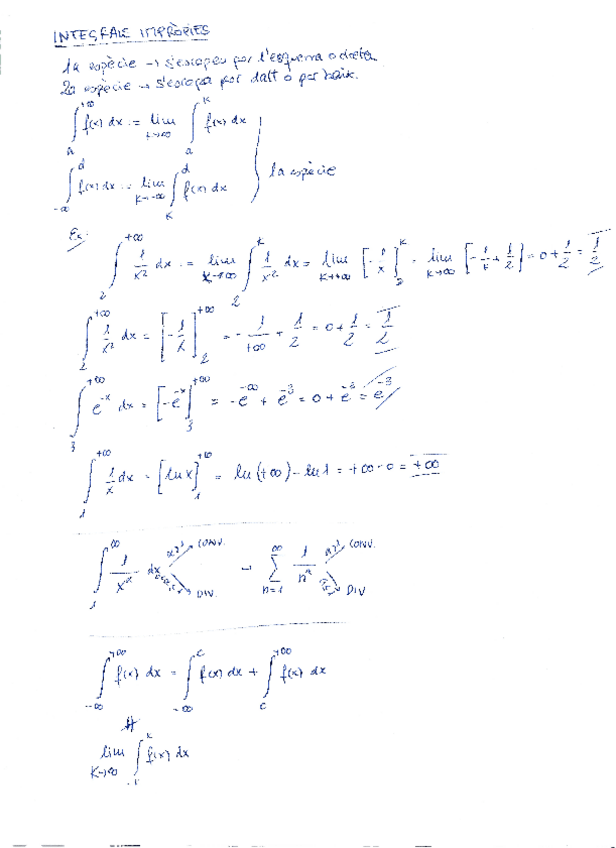 INTEGRALS IMPRÒPIES
1a espècie → s'escapen per l'esquerra o dreta.
2a espècie → s'escapa per dalt o per baix.
∫_a^{+∞} f(x) dx := lim_{k→+∞} ∫_a^k f(x) dx
∫_{-∞}^d f(x) dx := lim_{k→-∞} ∫_k^d f(x) dx } 1a espècie
Ex: ∫_2^{+∞} 1/x² dx := lim_{k→+∞} ∫_2^k 1/x² dx = lim_{k→+∞} [-1/x]_2^k = lim_{k→+∞} [-1/k + 1/2] = 0 + 1/2 = 1/2
∫_2^{+∞} 1/x² dx = [-1/x]_2^{+∞} = -1/+∞ + 1/2 = 0 + 1/2 = 1/2
∫_3^{+∞} e^{-x} dx = [-e^{-x}]_3^{+∞} = -e^{-∞} + e^{-3} = 0 + e^{-3} = e^{-3}
∫_1^{+∞} 1/x dx = [ln x]_1^{+∞} = ln(+∞) - ln 1 = +∞ - 0 = +∞
∫_1^∞ 1/x^α dx α>1 CONV. DIV. ∑_{n=1}^∞ 1/n^α α>1 CONV. DIV
∫_{-∞}^{+∞} f(x) dx = ∫_{-∞}^c f(x) dx + ∫_c^{+∞} f(x) dx
∦
lim_{k→∞} ∫_{-k}^k f(x) dx